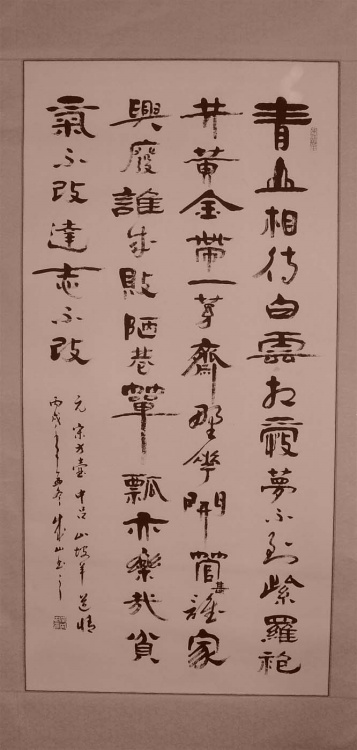 青山相待白雲相愛夢不到紫羅袍
共黃金帶一茅齋野華開管甚誰家
興廢誰成敗陋巷簞瓢亦樂哉貧
氣不改達志不改
元宋方壺中呂山坡羊道情
丙戌之 成山書之